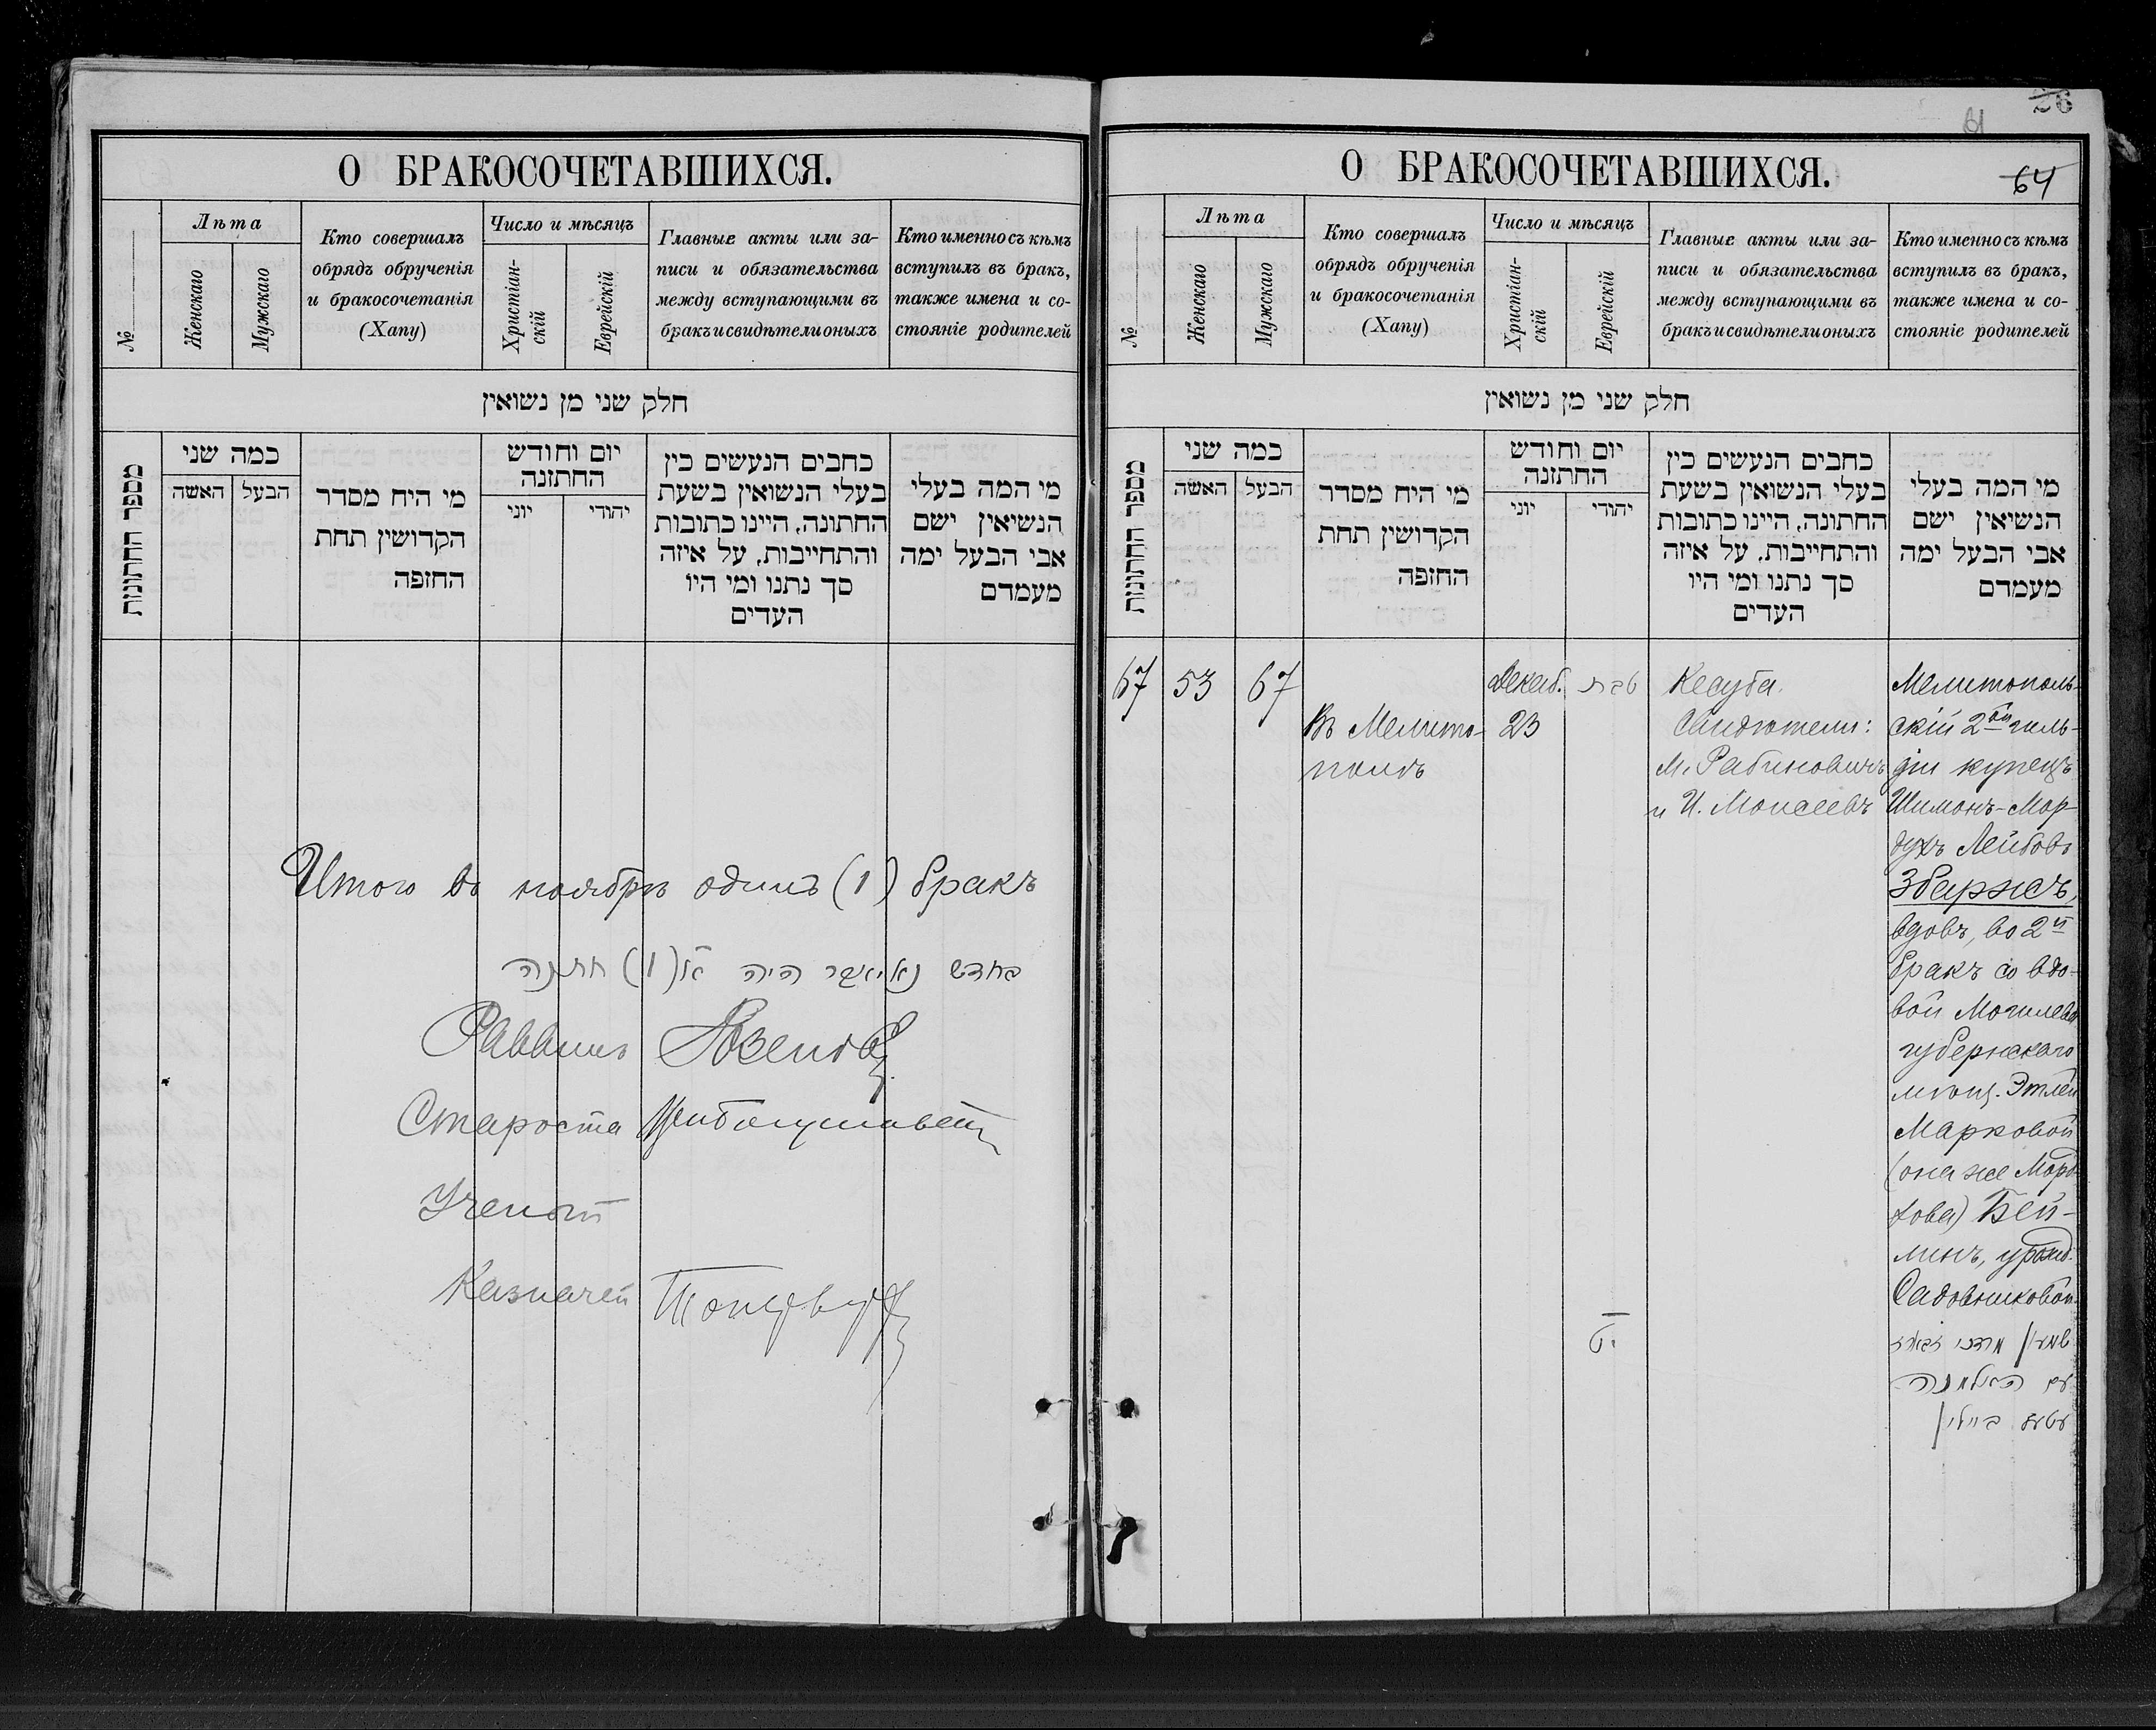 О БРАКОСОЧЕТАВШИХСЯ.
№
Лѣта
Женскаго
Мужскаго
Кто совершалъ
обрядъ обрученія
и бракосочетанія
(Хапу)
Число и мѣсяцъ
Христіан-
скій
Еврейскій
Главные акты или за-
писи и обязательства
между вступающими въ
бракъ и свидѣтели оныхъ
Кто именно съ кѣмъ
вступилъ въ бракъ,
также имена и со-
стояніе родителей
חלק שני מן נשואין
מספר החתונות
כמה שני
האשה
הבעל
מי היח מסדר
הקדושין תחת
החזפה
יום וחודש
החתזנה
יוני
יהודי
כחבים הנעשים כין
בעלי הנשואין בשעת
החתונה, היינו כתובות
והתחייבות, על איזה
סך נתנו ומי היו
העדים
מי המה בעלי
הנשיאין ישם
אבי הבעל ימה
מעמדם
Итого въ ноябрѣ одинъ (1) бракъ
בחדש נאיאבר היה א' (1) חתנה
Раввинъ
Староста
Ученый
Казначей
26
61
О БРАКОСОЧЕТАВШИХСЯ.
64
№
Лѣта
Женскаго
Мужскаго
Кто совершалъ
обрядъ обрученія
и бракосочетанія
(Хапу)
Число и мѣсяцъ
Христіан-
скій
Еврейскій
Главные акты или за-
писи и обязательства
между вступающими въ
бракъ и свидѣтели оныхъ
Кто именно съ кѣмъ
вступилъ въ бракъ,
также имена и со-
стояніе родителей
חלק שני מן נשואין
מספר החתונות
כמה שני
האשה
הבעל
מי היח מסדר
הקדושין תחת
החזפה
יום וחודש
החתזנה
יוני
יהודי
כחבים הנעשים כין
בעלי הנשואין בשעת
החתונה, היינו כתובות
והתחייבות, על איזה
סך נתנו ומי היו
העדים
מי המה בעלי
הנשיאין ישם
אבי הבעל ימה
מעמדם
67
53
67
Въ Мелито-
полѣ
Декаб.
23
טבת
י"ט
Кесуба.
Свидѣтели:
М. Рабиновичъ
и И. Моисеевъ
Мелитополь-
скій 2ой гиль-
діи купецъ
Шимонъ-Мор-
духъ Лейбовъ
Збаржъ,
вдовъ, во 2й
бракъ со вдо-
вой Могилевск.
губернскаго
мѣщ. Этлей
Марковой
(она же Морд-
хова) Бей-
линъ, урожд.
Садовниковой.
שמעון מרדכי זבארז
עם האלמנה
עטעל ביילין